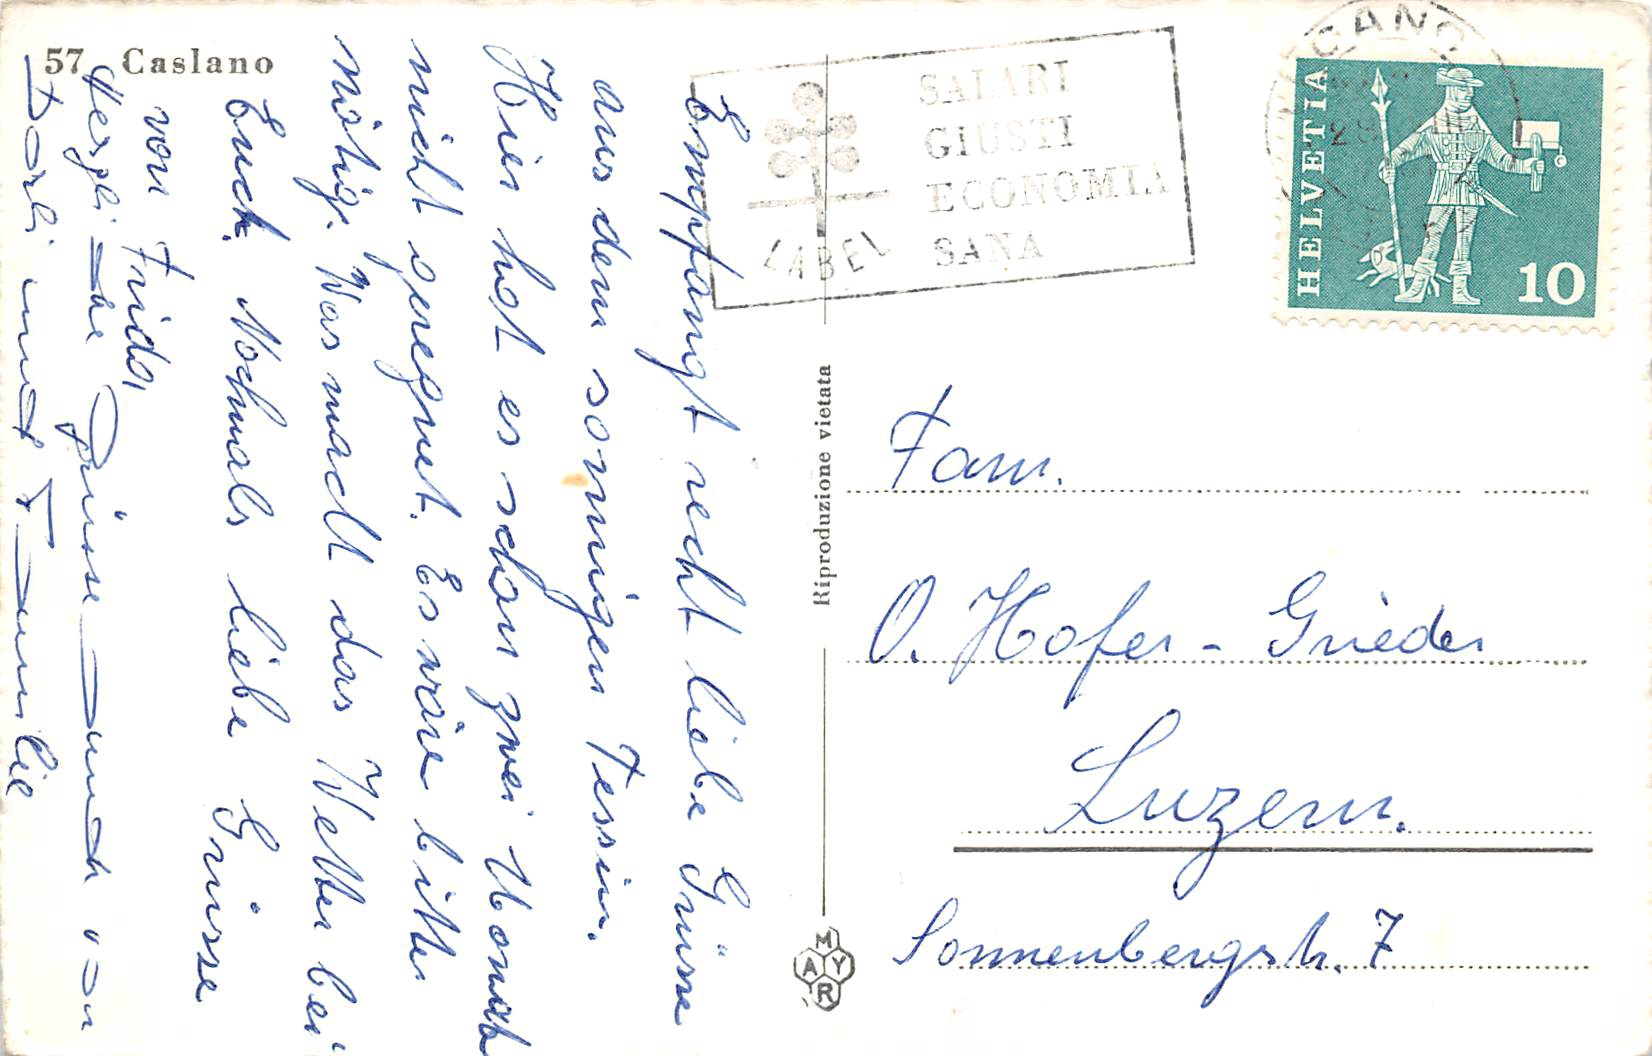 57 Caslano
Empfangt recht liebe Grüsse
aus dem sonnigen Tessin.
Hier hat es schon zwei Monate
nicht geregnet. Es wäre bitter
nötig. Was macht das Wetter bei
Euch. Nochmals liebe Grüsse
von Frida
Herzliche Grüsse auch von
Dorli und Familie
SALARI
GIUSTI
ECONOMIA
SANA
LABEL
HELVETIA
10
Riproduzione vietata
Fam.
O. Hofer - Grieder
Luzern.
Sonnenbergstr. 7
MAYR